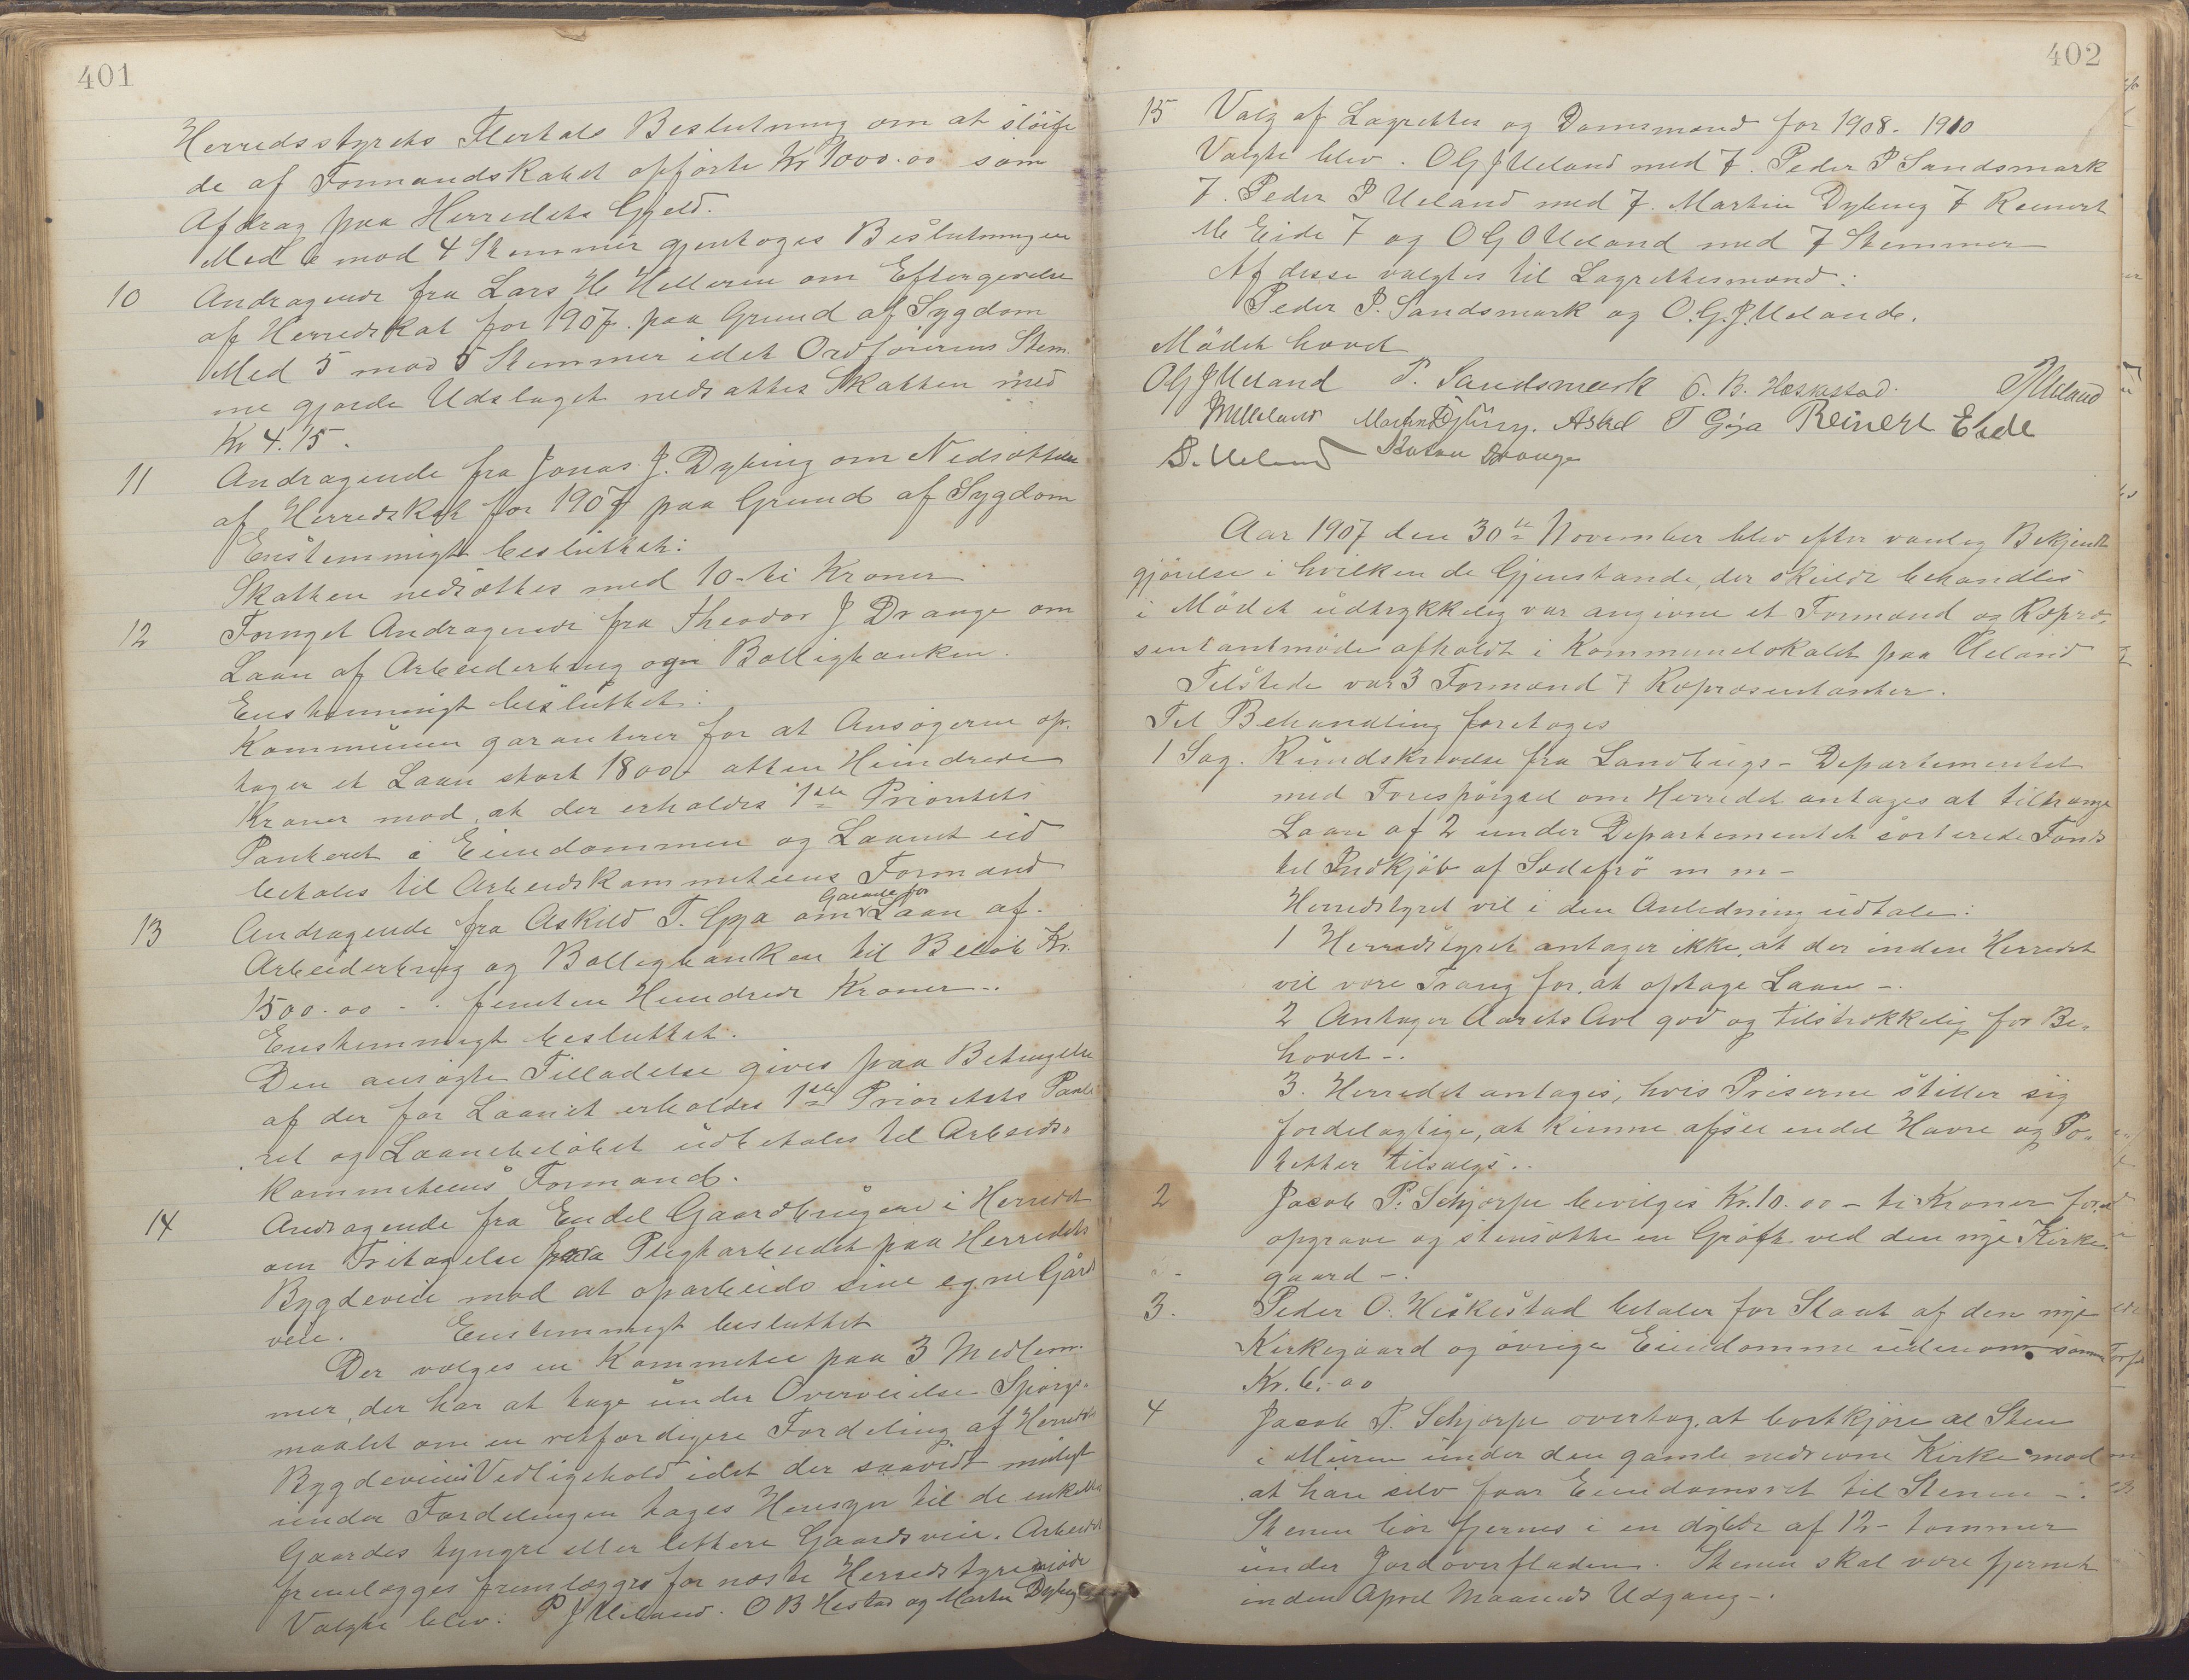 401
Herredsstyrets Flertals Beslutning om at slöife
de af Formandskabet opförte Kr 1000.00 som
Afdrag paa Herredets Gjeld.
Med 6 mod 4 Stemmer gjentoges Beslutningen
10 Andragende fra Lars H Helleren om Eftergivelse
af Herredskat for 1907. paa Grund af Sygdom
Med 5 mod 5 Stemmer idet Ordförerens Stem
me gjorde Udslaget nedsattes Skatten med
Kr 4.15.
11 Andragende fra Jonas J. Dybing om Nedsættelse
af Herredskat for 1907 paa Grund af Sygdom
Enstemmigt besluttet:
Skatten nedsættes med 10-ti Kroner
12 Fornyet Andragende fra Theodor J Drange om
Laan af Arbeiderbrug ogn Boligbanken.
Enstemmigt besluttet:
Kommunen garanterer for at Ansögeren op-
tager et Laan stort 1800- atten Hundrede
Kroner mod, at der erholdes 1ste Prioritets
Panteret i Eiendommen og Laanet ud
betales til Arbeidskommiteens Formand
13 Andragende fra Askild T. Gya om Garanti for Laan af
Arbeiderbrug og Boligbanken til Belöb Kr.
1500.00 - . femten Hundrede Kroner -.
Enstemmigt besluttet.
Den ansögte Tilladelse gives paa Betingelse
af der for Laanet erholdes 1ste Prioritets Pante
ret og Laanebelöbet udbetales til Arbeids-
kommiteens Formand.
14 Andragende fra Endel Gaardbrugere i Herredet
om Fritagelse fra Pligtarbeidet paa Herredets
Bygdeveie mod at oparbeide sine egne Gårds
veie. Enstemmigt besluttet
Der vælges en Kommitee paa 3 Medlem-
mer, der har at tage under Overveielse Spörgs-
maalet om en retfærdigere Fordeling af Herredets
Bygdeveies Vedligehold idet der saavidt muligt
under Fordelingen tages Hensyn til de enkelte
Gaardes tyngre eller lettere Gaardsveie. Arbeidet
fremlægges fremlægges for næste Herredstyremöde
Valgte blev: P J Ueland. O B Hestad og Martin Dybing
402
15 Valg af Lagrettes og Domsmænd for 1908-1910
Valgte blev. OGJ Ueland med 7. Peder P Sandsmark
7. Peder P Ueland med 7. Martin Dybing 7 Reinert
M Eide 7 og OGO Ueland med 7 Stemmer
Af disse valgtes til Lagrettesmænd:
Peder P. Sandsmark og O.G.J. Ueland.
Mödet hævet
OGJ Ueland P. Sandsmark O. B. Heskestad. PJ Ueland
Martin Dybing. Askel T Gya Reinert Eide
S. Ueland Drange
Aar 1907 den 30te November blev efter vanlig Bekjendt
gjörelse i hvilken de Gjenstande, der skulde behandles
i Mödet udtrykkelig var angivne et Formand og Repræ-
sentantmöde afholdt i Kommunelokalet paa Ueland
Tilstede var 3 Formænd 7 Repræsentanter.
Til Behandling foretoges
1 Sag. Rundskrivelse fra Landbrugs-Departementet
med Forespörgsel om Herredet antages at tiltrænge
Laan af 2 under Departementet sorterede Fonds
til Indkjöb af Sædefrö m m-
Herredstyret vil i den Anledning udtale:
1 Herredstyret antager ikke, at der inden Herredet
vil være Trang for, at optage Laan -.
2 Antager Aarets Avl god og tilstrækkelig for Be-
hovet -.
3. Herredet antages, hvis Priserne stiller sig
fordelagtige, at kunne afsee endel Havre og Po-
tetter tilsalgs..
2 Jacob P. Schjorpe bevilges Kr. 10.00 - ti Kroner for at
opgrave og stensætte en Gröft ved den nye Kirke-
gaard -.
3. Peder O. Heskestad betaler for Slaat af den nye
Kirkegaard og övrige Eiendomme udenom samme
Kr. 6.-00
4 Jacob P. Schjorpe overtog, at bortkjöre al Sten
i Muren under den gamle nedrevne Kirke mod
at han selv faar Eiendomsret til Stenen -.
Stenen bör fjernes i en dybde af 12-tommer
under Jordoverfladen. Stenen skal være fjernet
inden April Maaneds Udgang -.